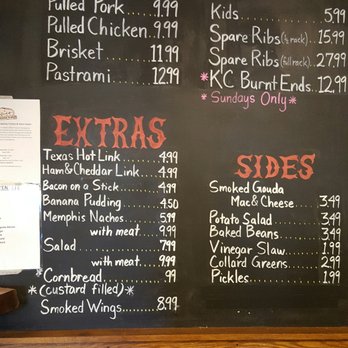 Pulled Pork 9.99
Pulled Chicken 9.99
Brisket 11.99
Pastrami 12.99
Kids 5.99
Spare Ribs (½ rack) 15.99
Spare Ribs (full rack) 27.99
*KC Burnt Ends 12.99
*Sundays Only*
EXTRAS
Texas Hot Link 4.99
Ham & Cheddar Link 4.99
Bacon on a Stick 4.99
Banana Pudding 4.50
Memphis Nachos 5.99
with meat 9.99
Salad 7.99
with meat 9.99
*Cornbread .99
*(custard filled)*
Smoked Wings 8.99
SIDES
Smoked Gouda
Mac & Cheese 3.49
Potato Salad 3.49
Baked Beans 3.49
Vinegar Slaw 1.99
Collard Greens 2.99
Pickles 1.99